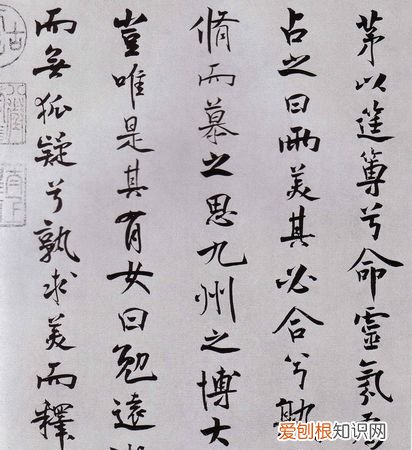 茅以筳篿兮命靈氛
占之曰兩美其必合兮
脩而慕之思九州之博大
豈唯是其有女曰勉遠
而無狐疑兮孰求美而釋
爱刨根知识网